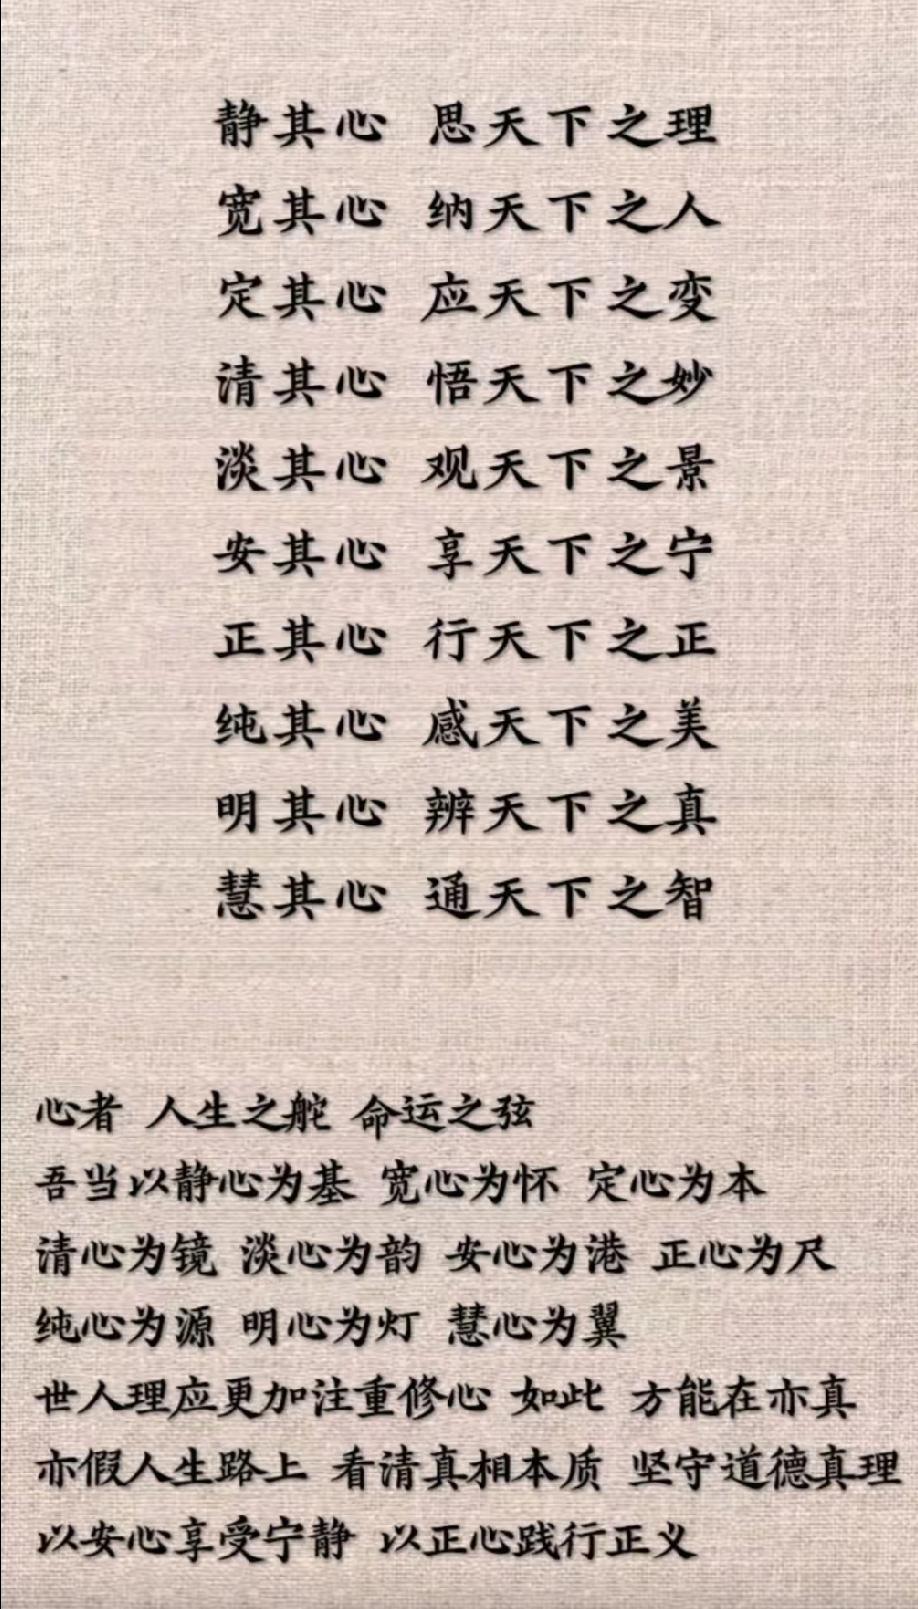 静其心 思天下之理
宽其心 纳天下之人
定其心 应天下之变
清其心 悟天下之妙
淡其心 观天下之景
安其心 享天下之宁
正其心 行天下之正
纯其心 感天下之美
明其心 辨天下之真
慧其心 通天下之智
心者 人生之舵 命运之弦
吾当以静心为基 宽心为怀 定心为本
清心为镜 淡心为韵 安心为港 正心为尺
纯心为源 明心为灯 慧心为翼
世人理应更加注重修心 如此 方能在亦真
亦假人生路上 看清真相本质 坚守道德真理
以安心享受宁静 以正心践行正义